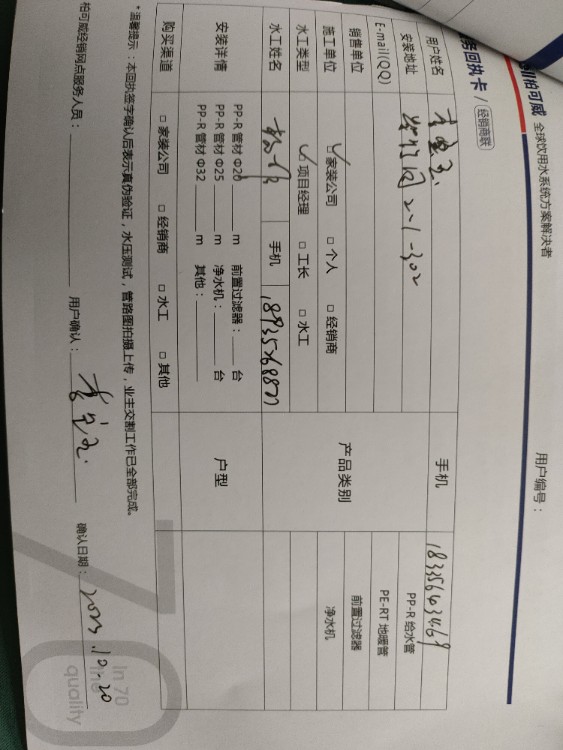 柏可威 全球饮用水系统方案解决者
用户编号：
务回执卡 / 经销商联
用户姓名
手机 18356403469
安装地址 2-1-302
PP-R 给水管
E-mail(QQ)
PE-RT 地暖管
销售单位
产品类别
前置过滤器
施工单位 ☑ 家装公司 □ 个人 □ 经销商
净水机
水工类型 ☑ 项目经理 □ 工长 □ 水工
水工姓名
手机 18935268877
安装详情
PP-R 管材 Φ20 m 前置过滤器： 台
PP-R 管材 Φ25 m 净水机： 台
PP-R 管材 Φ32 m 其他：
户型
购买渠道 □ 家装公司 □ 经销商 □ 水工 □ 其他
*温馨提示：本回执签字确认后表示真伪验证，水压测试，管路图拍摄上传，业主交割工作已全部完成。
柏可威经销网点服务人员：
用户确认：
确认日期： 2023.10.20
70
In 70
quality